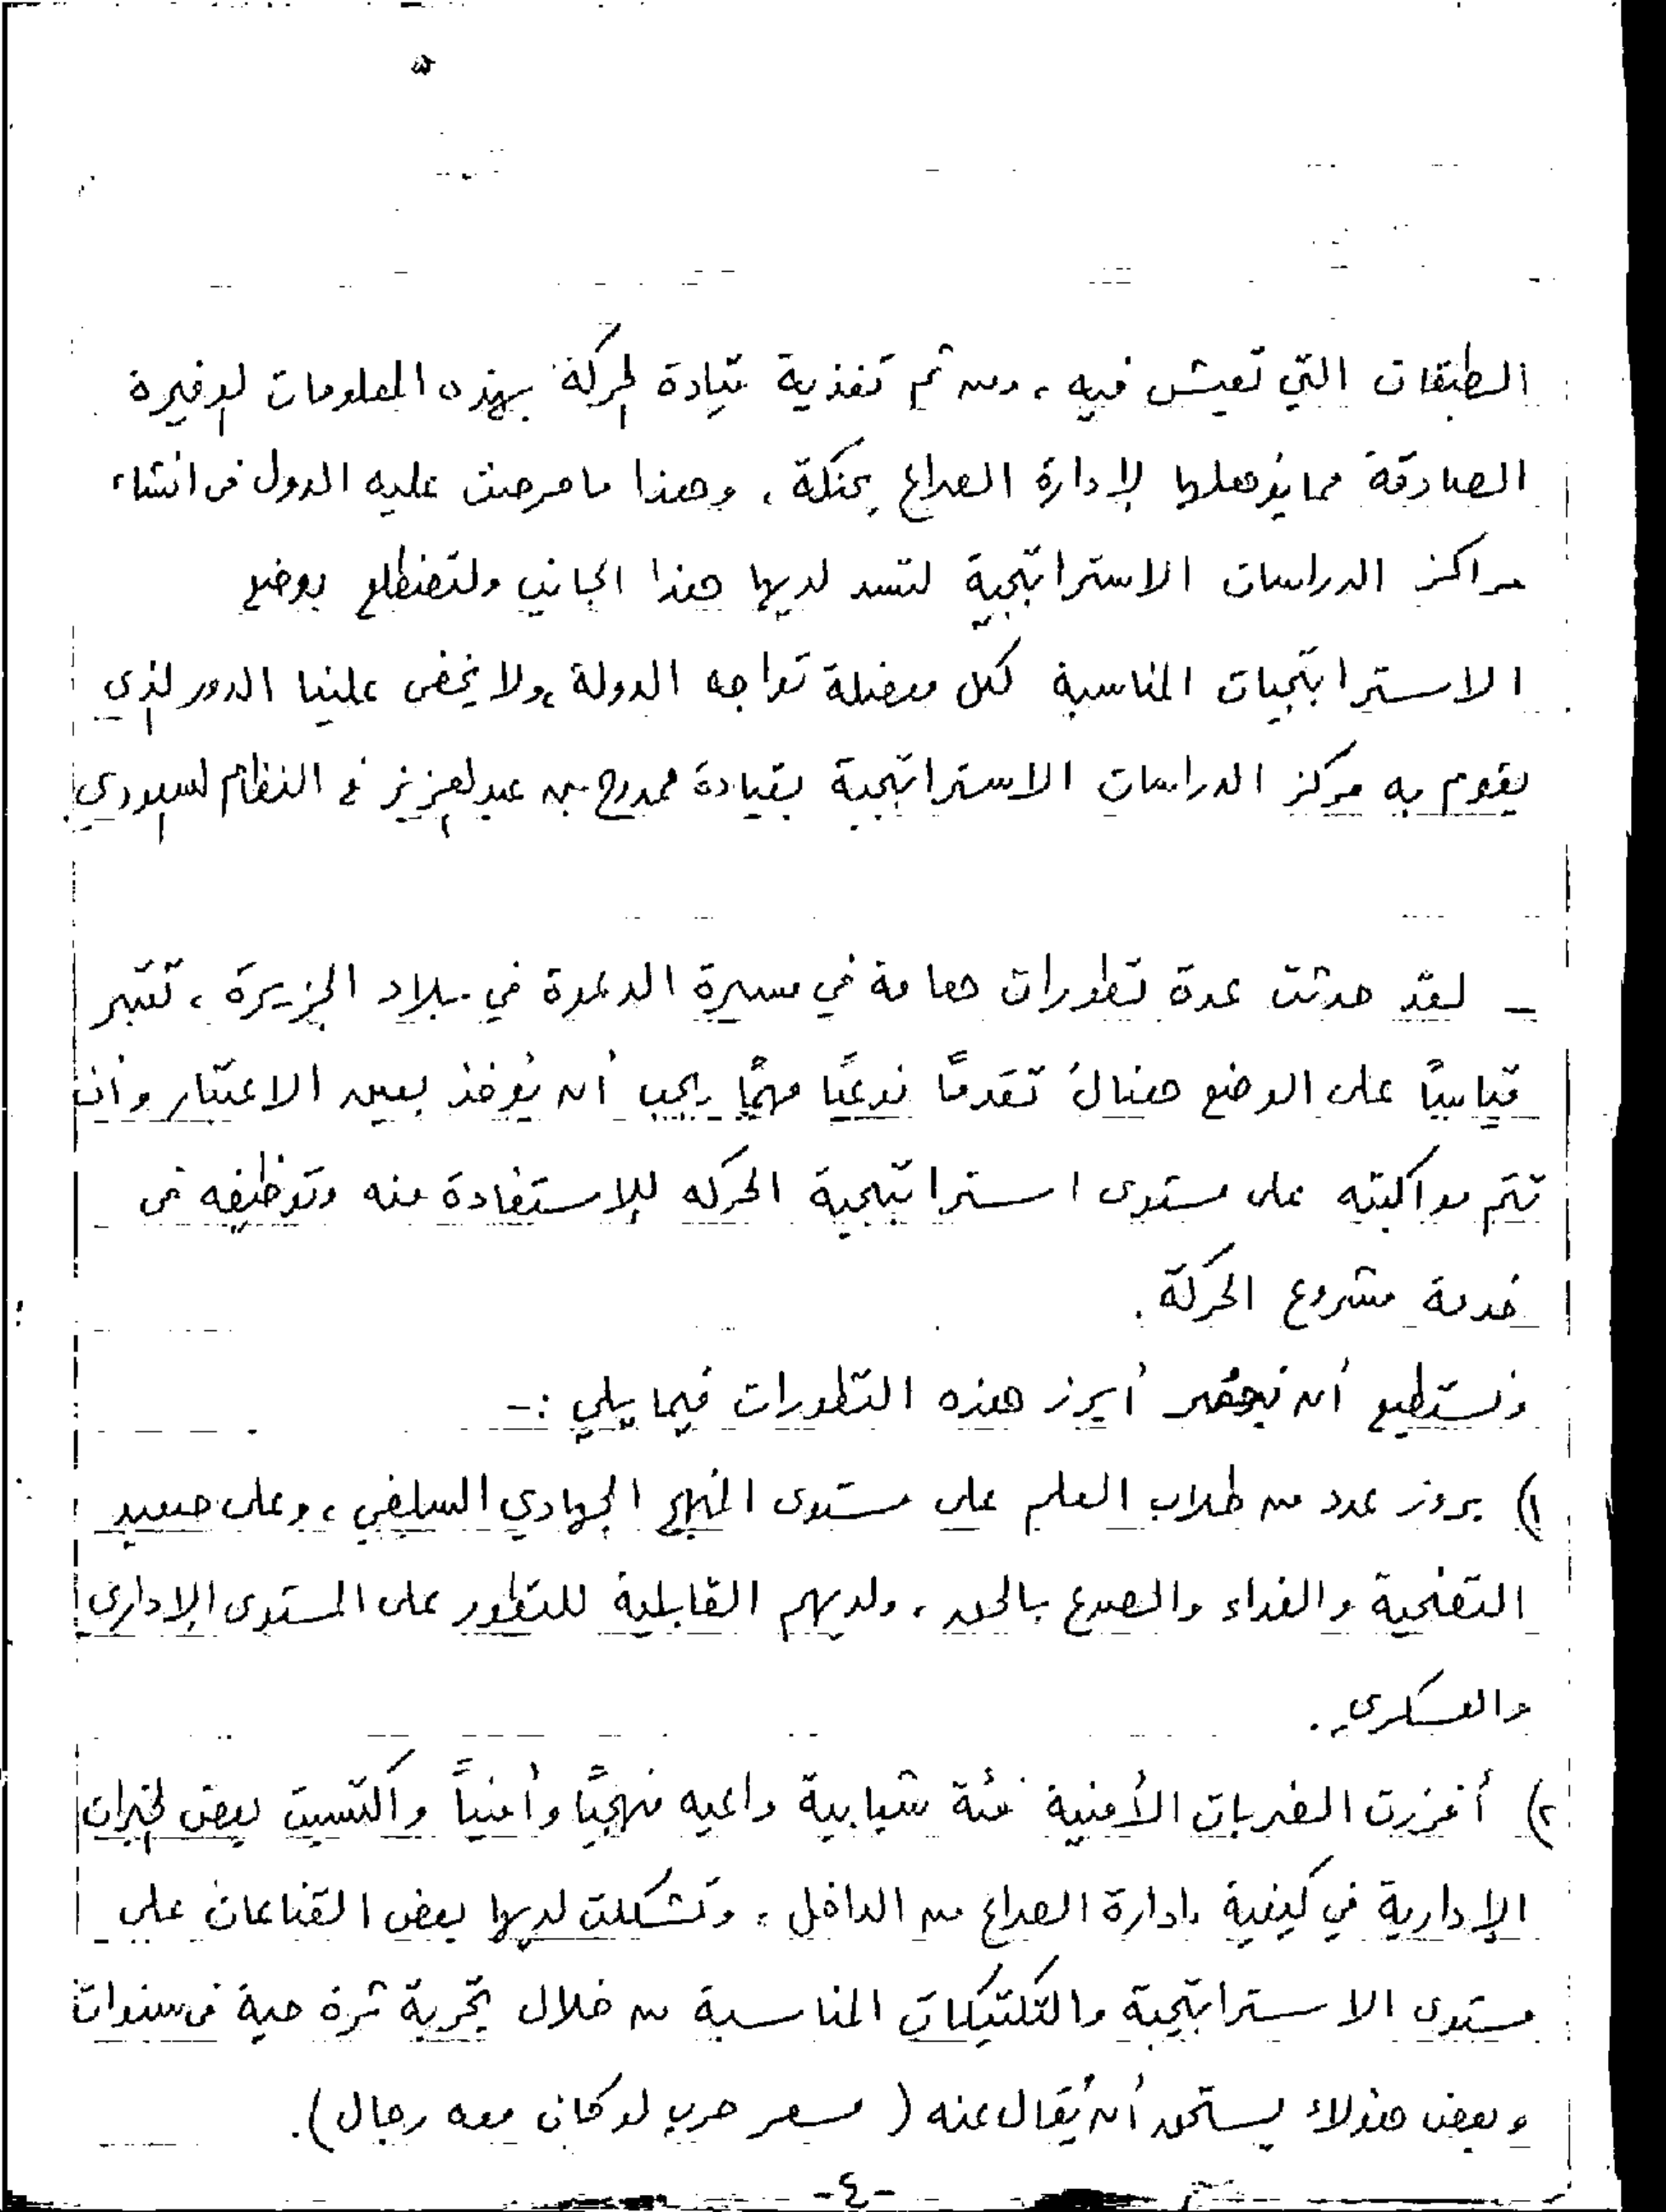 الطبقات التي تعيش فيه ، ومن ثم تغذية قيادة الحركة بهذه المعلومات الوفيرة
الصادقة مما يؤهلها لإدارة الصراع بحنكة ، وهذا ما حرصت عليه الدول في انشاء
مراكز الدراسات الاستراتيجية لتسد لديها هذا الجانب ولتضطلع بوضع
الاستراتيجيات المناسبة لكل معضلة تواجه الدولة ، ولا يخفى علينا الدور الذي
يقوم به مركز الدراسات الاستراتيجية بقيادة ممدوح بن عبدالعزيز في النظام السعودي .
ـ لقد حدثت عدة تطورات هامة في مسيرة الدعوة في بلاد الجزيرة ، تعتبر
قياسياً على الوضع هناك تقدماً نوعياً مهماً يجب أن يؤخذ بعين الاعتبار وأن
تتم مواكبته على مستوى استراتيجية الحركه للاستفادة منه وتوظيفه في
خدمة مشروع الحركة .
ونستطيع أن نحصر أبرز هذه التطورات فيما يلي :-
١) بروز عدد من طلاب العلم على مستوى المنهج الجهادي السلفي ، وعلى صعيد
التضحية والفداء والصدع بالحق ، ولديهم القابلية للتطور على المستوى الإداري
والعسكري .
٢) أفرزت الضربات الأمنية فئة شبابية واعيه منهجياً وأمنياً واكتسبت بعض الخبرات
الإدارية في كيفية إدارة الصراع من الداخل ، وتشكلت لديها بعض القناعات على
مستوى الاستراتيجية والتكتيكات المناسبة من خلال تجربة ثرة حية في سنوات
وبعض هؤلاء يستحق أن يُقال عنه ( مسعر حرب لو كان معه رجال ) .
-٤-